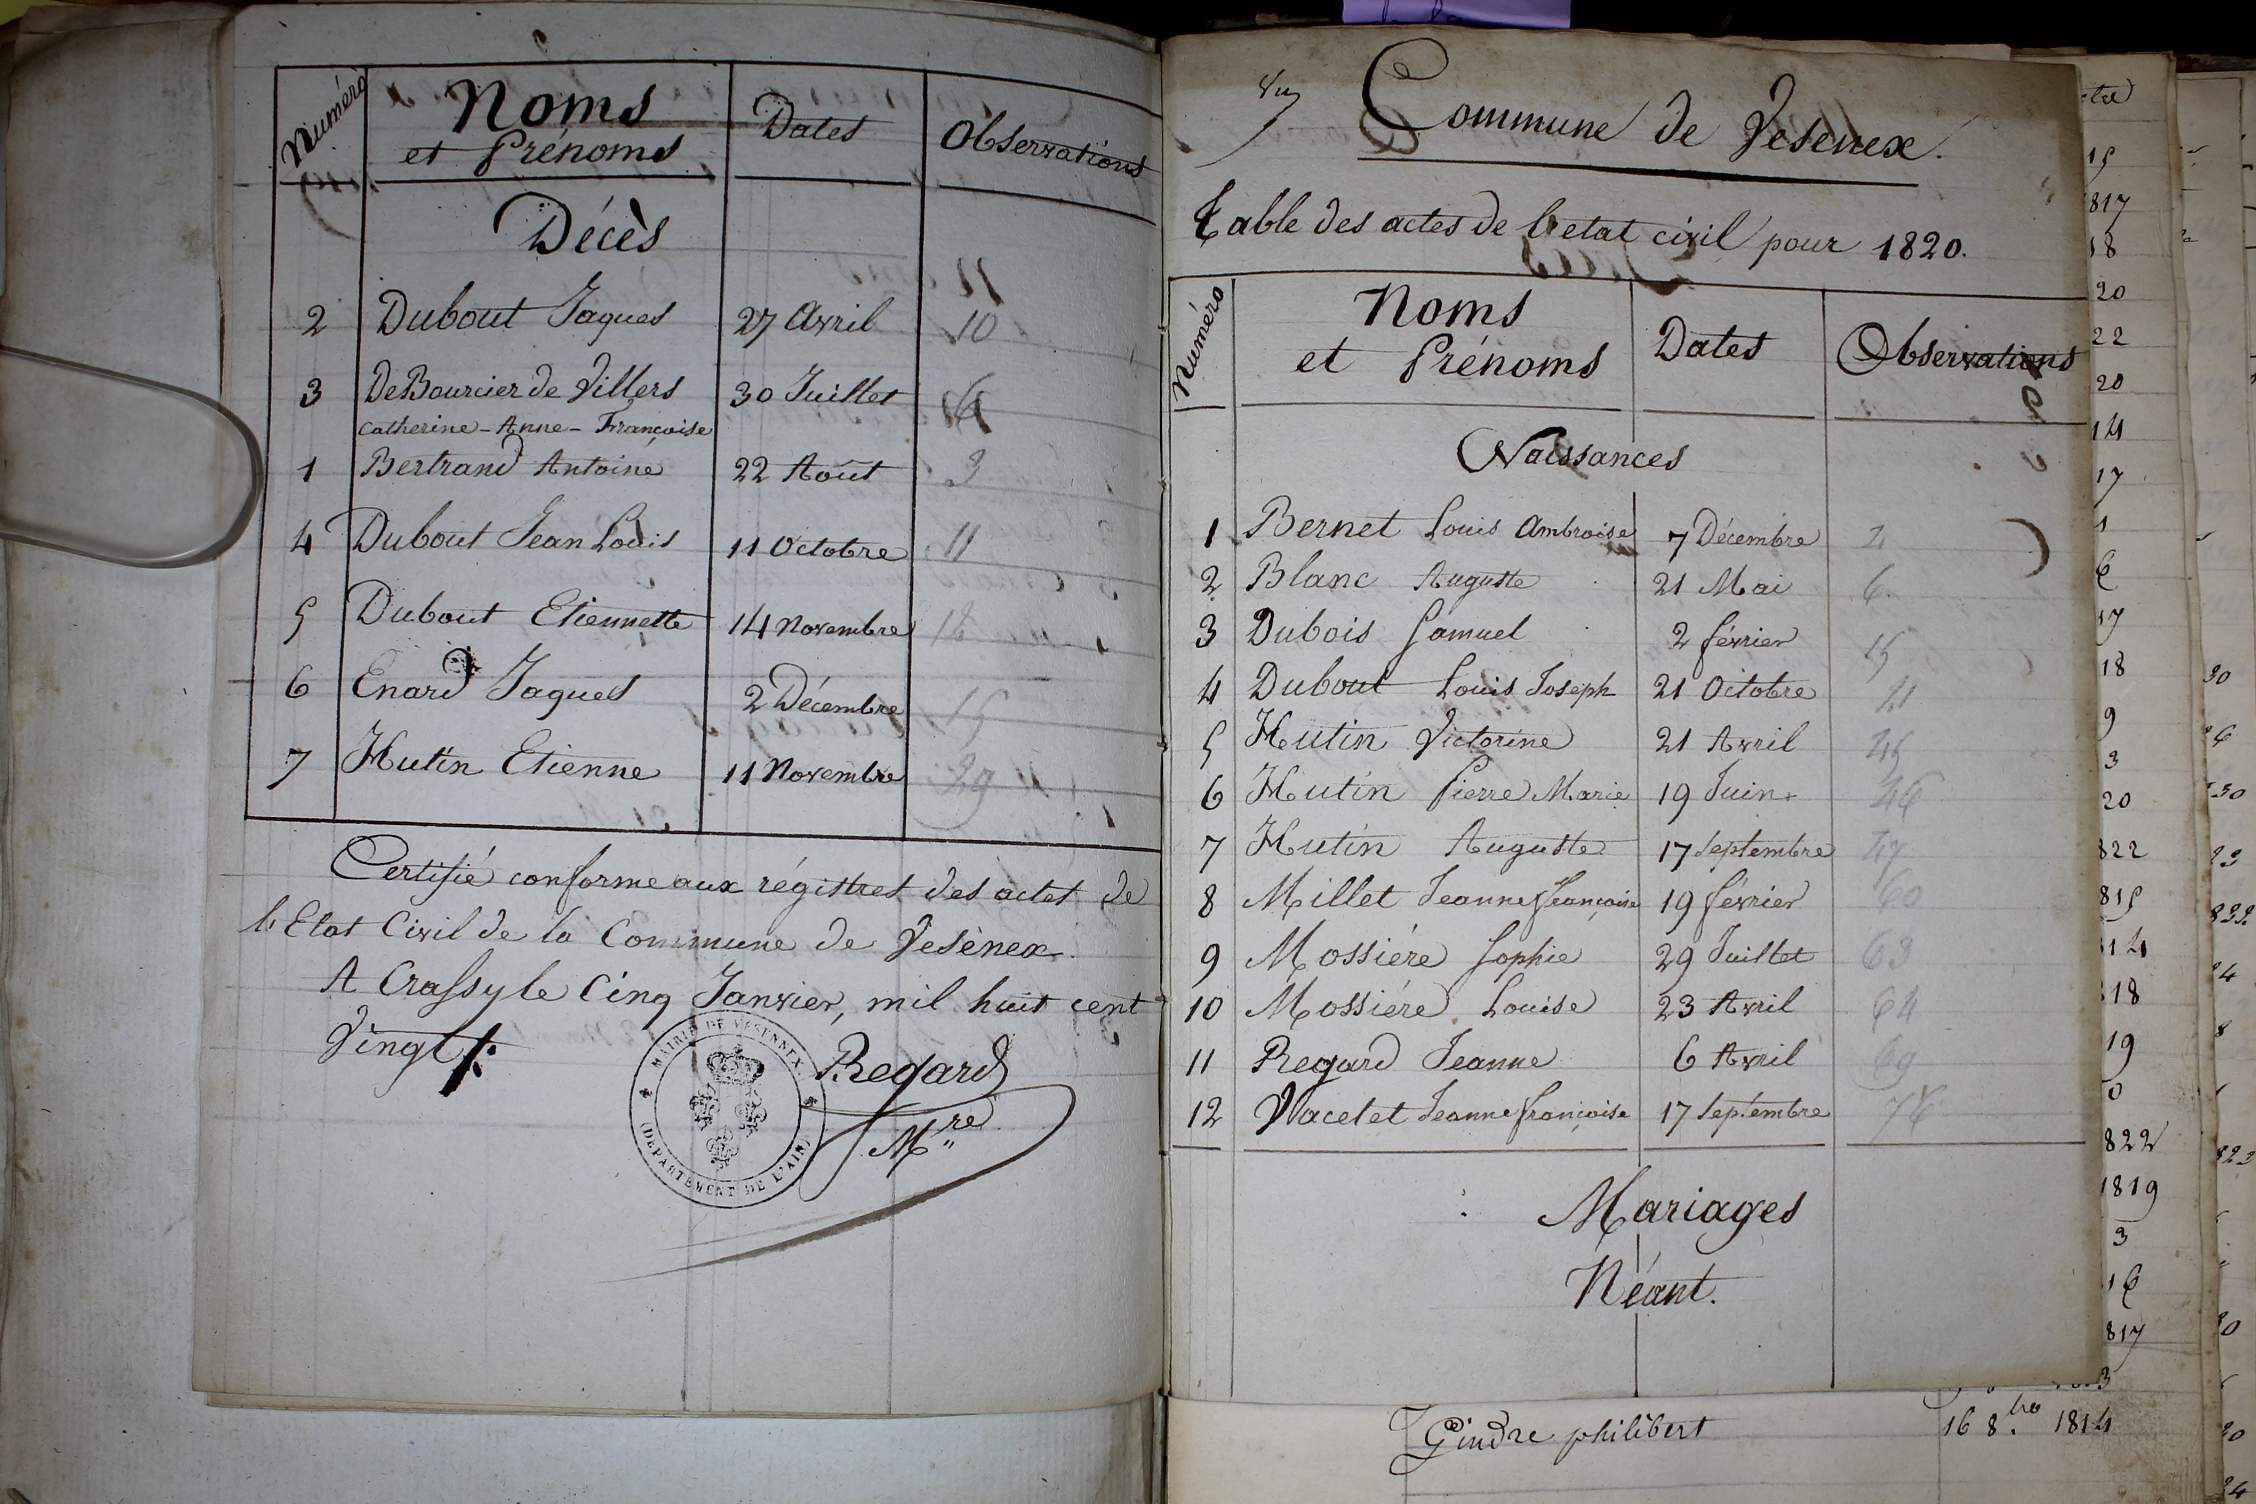 Numéro
Noms
et Prénoms
Dates
Observations
Décès
2 Dubout Jaques 27 Avril 10
3 DeBourcier de Villers 30 Juillet 6
Catherine-Anne-Françoise
1 Bertrand Antoine 22 Août 3
4 Dubout Jean Louis 11 Octobre 11
5 Dubout Etiennette 14 Novembre 12
6 Enard Jaques 2 Décembre 15
7 Hutin Etienne 11 Novembre 29
Certifié conforme aux régistres des actes de
l'Etat Civil de la Commune de Vesènex.
A Crassy le Cinq Janvier, mil huit cent
Vingt
MAIRIE DE VESENNEX
(DEPARTEMENT DE L'AIN)
Regard
Mre
Commune de Vesenex.
Table des actes de l'etat civil pour 1820.
Numéro
Noms
et Prénoms
Dates
Observations
Naissances
1 Bernet Louis Ambroise 7 Décembre
2 Blanc Auguste 21 Mai 6
3 Dubois Samuel 2 février 15
4 Dubout Louis Joseph 21 Octobre 21
5 Hutin Victorine 21 Avril 45
6 Hutin Pierre Marie 19 Juin 46
7 Hutin Auguste 17 Septembre 47
8 Millet Jeanne Françoise 19 février 60
9 Mossiére Sophie 29 Juillet 63
10 Mossiére Louise 23 Avril 64
11 Regard Jeanne 6 Avril 69
12 Vacelet Jeanne françoise 17 Septembre 76
Mariages
Néant.
Gindre philibert 16 8.bre 1814
15
817
18
20
22
20
14
17
1
6
17
18
9
3
20
822
815
14
18
19
0
822
1819
3
16
817